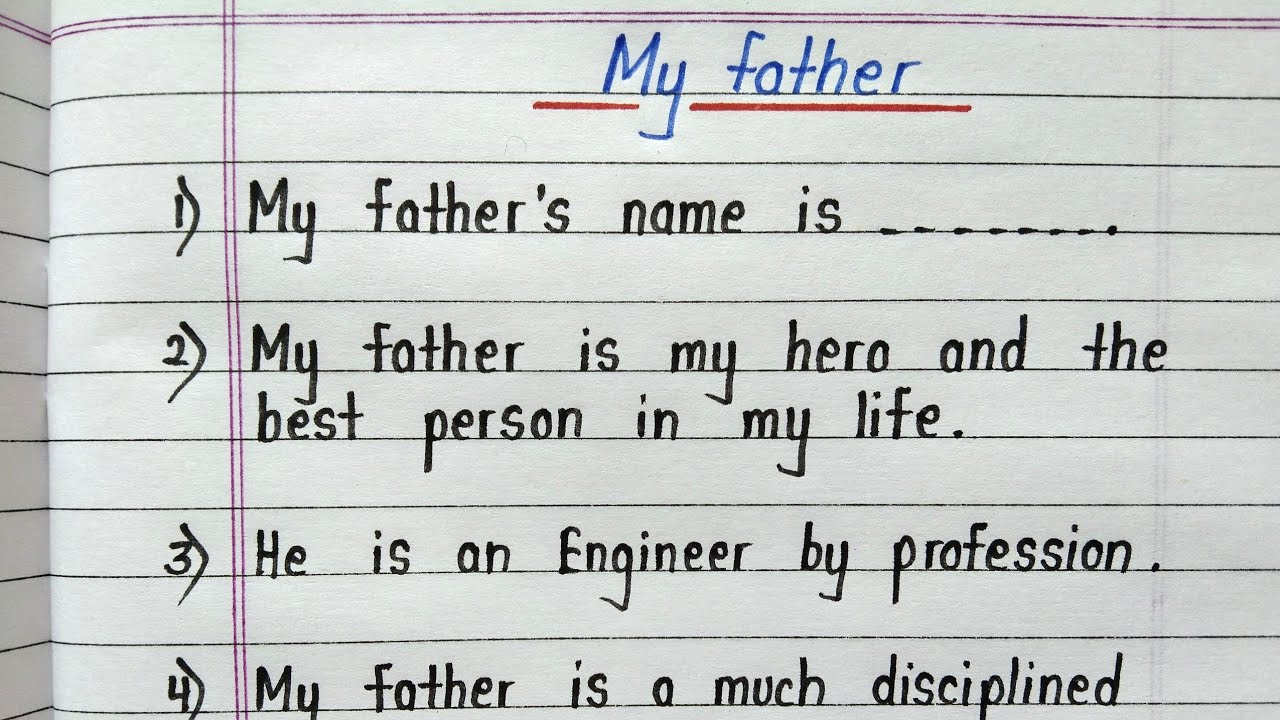 My father
1) My father's name is --------.
2) My father is my hero and the
best person in my life.
3) He is an Engineer by profession.
4) My father is a much disciplined